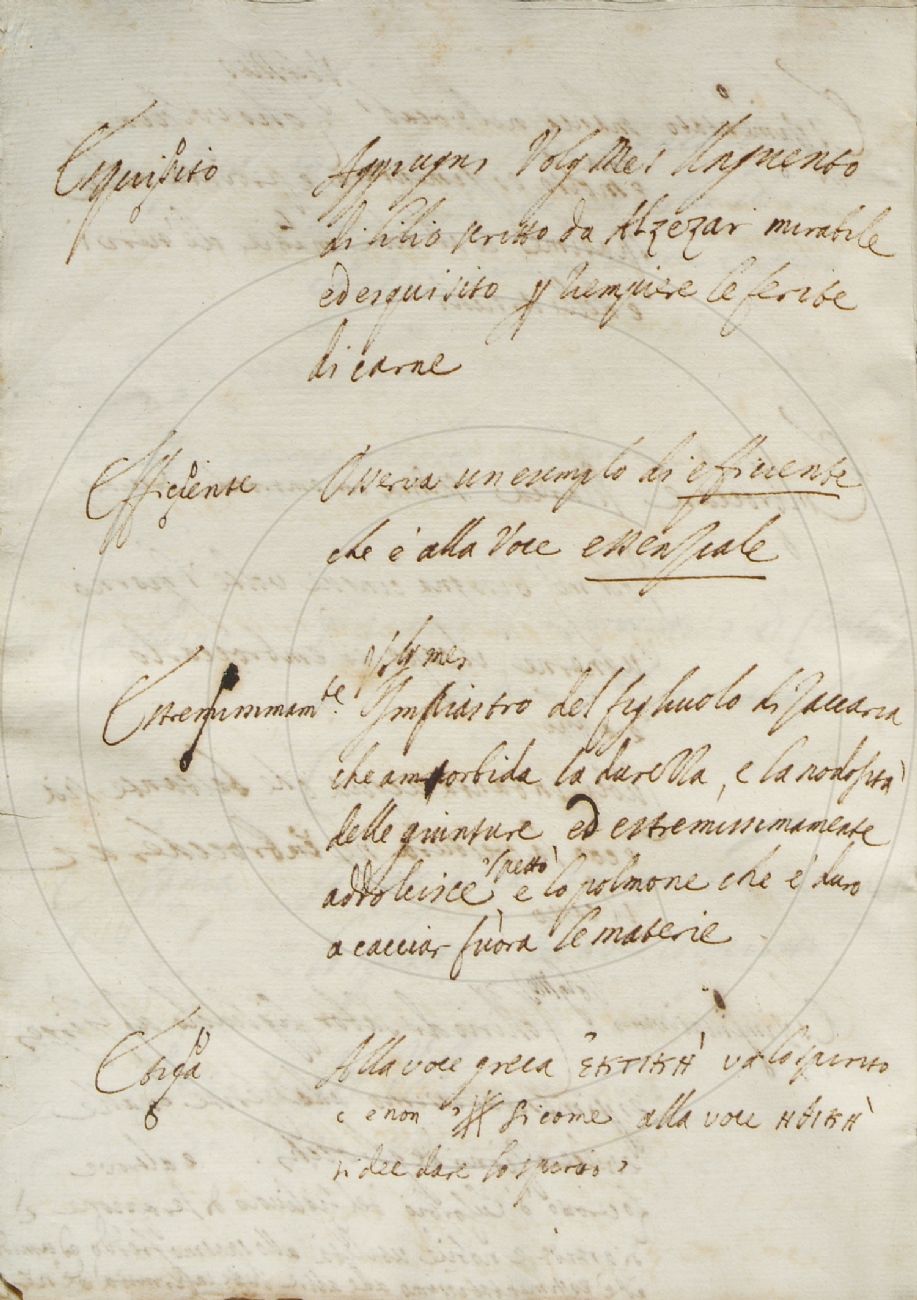 Esquisito
Aggiugni Volg Mes Unguento
di lilio scritto da Alzezar mirabile
ed esquisito p riempiere le ferite
di carne
Efficiente
Osserva un esemplo di efficiente
che è alla Voce essenziale
Volg mes
Estremissimam.te
Impiastro del figliuolo di Zaccaria
che ammorbida la durezza, e la nodosità
delle giunture ed estremissimamente
addolcisce 'l petto e lo polmone che è duro
a cacciar fuora le materie
Etiga
Alla voce greca ἑκτικὴ va lo spirito
c e non siccome alla voce ηθικὴ
si dee dare lo spirito